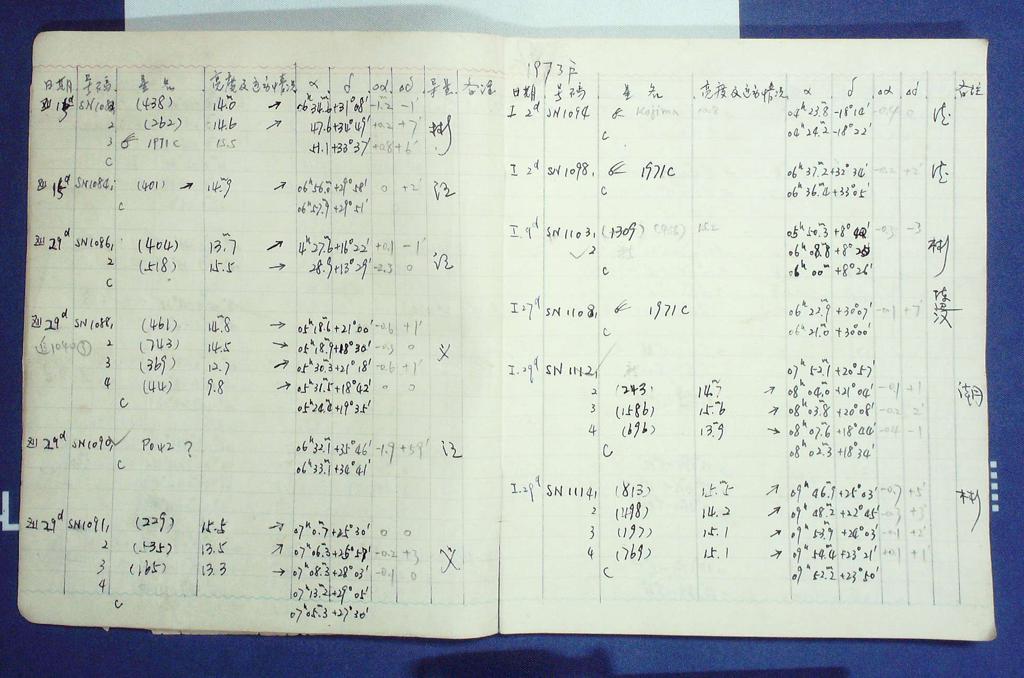 日期 号码 星名 亮度及运动情况 α δ Δα Δδ 备注
(438) 14.0 → 06ʰ34.6ᵐ+31°08′ -1.2 -1′
2 (262) 14.6 → 47.6+34°49′ +0.2 +7′ 彬
3 1971C 15.5 41.1+33°37′ +0.8 +6′
C
SN1084, (401) → 14.9 → 06ʰ56.0ᵐ+29°58′ 0 +2′
C 06ʰ57.9ᵐ+29°51′
29ᵈ SN1086, (404) 13.7 → 4ʰ27.6ᵐ+16°22′ +0.1 -1′
2 (518) 15.5 → 28.9+13°29′ -2.3 0
C
29ᵈ SN1088, (461) 14.8 → 05ʰ18.6ᵐ+21°00′ -0.6 +1′
2 (743) 14.5 → 05ʰ18.9ᵐ+18°30′ -0.3 0
3 (369) 12.7 → 05ʰ30.3ᵐ+21°18′ -0.6 +1′
4 (44) 9.8 → 05ʰ31.5ᵐ+18°42′ 0 0
C 05ʰ24.4ᵐ+19°35′
29ᵈ SN1090, ✓ ? 06ʰ32.1ᵐ+35°46′ -1.9 +59′
C 06ʰ33.1ᵐ+34°41′
29ᵈ SN1091, (229) 15.5 → 07ʰ0.7ᵐ+25°30′ 0 0
2 (535) 13.5 ↗ 07ʰ06.3ᵐ+25°57′ -0.2 +3
3 (165) 13.3 ↗ 07ʰ08.3ᵐ+28°03′ -0.1 0
4 07ʰ13.2ᵐ+29°05′
C 07ʰ05.3ᵐ+27°30′
1973年
日期 号码 星名 亮度及运动情况 α δ Δα Δδ 备注
I 2ᵈ SN1094 Kojima 04ʰ23.8ᵐ -18°14′
C 04ʰ24.2ᵐ -18°22′
I 2ᵈ SN1098, 1971C 06ʰ37.2ᵐ+32°34′ -0.2 +2′
C 06ʰ36.4ᵐ+33°05′
I. 9ᵈ SN1103, (1309) 15.2 05ʰ50.3ᵐ -0.3 -3
✓ 2 彬
C 06ʰ00ᵐ +8°26′
I 27ᵈ SN1108, 1971C 06ʰ22.9ᵐ+30°07′ -0.1 +7′
C 06ʰ21.0ᵐ+30°00′
I. 29ᵈ SN1112, 07ʰ52.1ᵐ+20°57′
2 (243) 14.7 ↗ 08ʰ04.0ᵐ+21°04′ -0.1 +1′ 潮
3 (1586) 15.6 ↗ 08ʰ03.8ᵐ+20°08′ -0.2 2′
4 (696) 13.9 → 08ʰ07.6ᵐ+18°44′ -0.4 -1
C 08ʰ02.3ᵐ+18°34′
I. 29ᵈ SN1114, (813) 15.5 ↗ 09ʰ46.9ᵐ+25°03′ -0.7 +5′ 彬
2 (498) 14.2 ↗ 09ʰ48.2ᵐ+22°45′ -0.3 +3′
3 (197) 15.1 ↗ 09ʰ53.9ᵐ+24°03′ -0.1 +2′
4 (769) 15.1 ↗ 09ʰ54.4ᵐ+23°21′ +0.1 +1′
C 09ʰ52.2ᵐ+23°50′